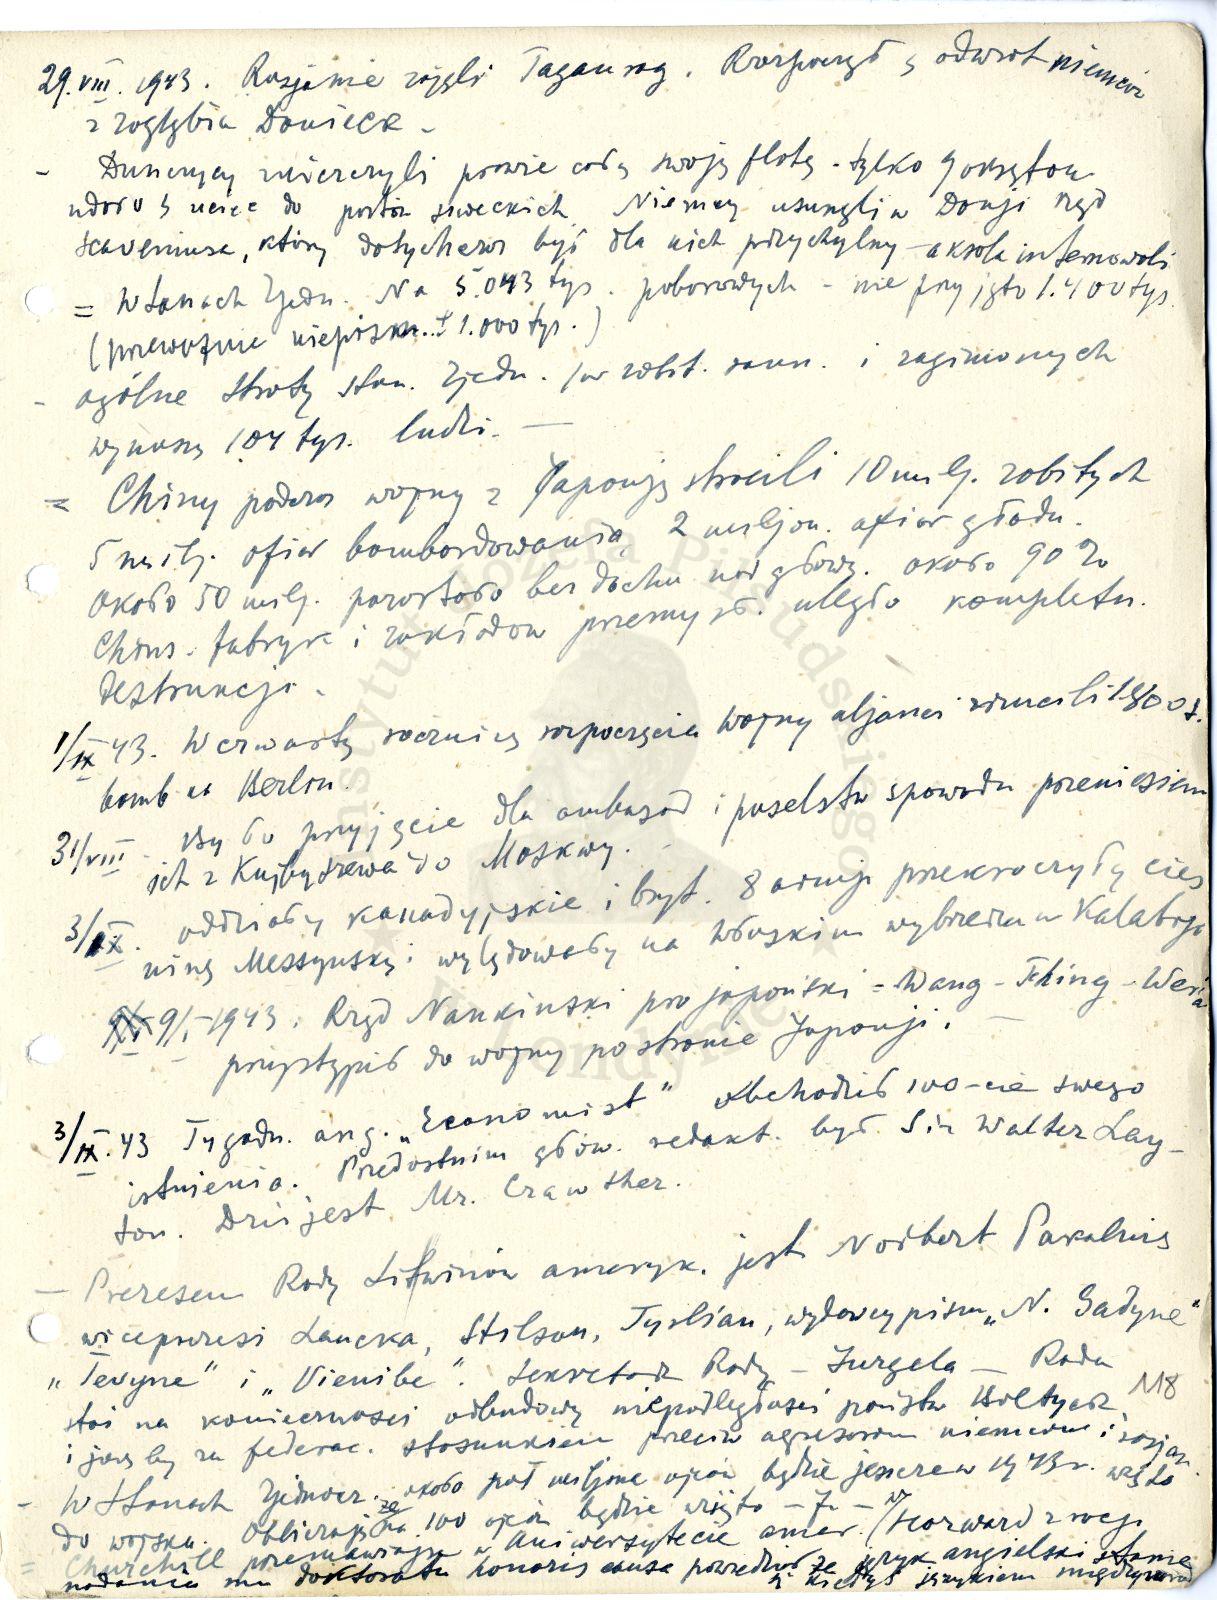 29.VIII.1943. Rosjanie zajęli Taganrog. Rozpoczął ś odwrót niemców
z zagłębia Donieck -
- Duńczycy zniszczyli prawie całą swoją flotę - tylko 9 okrętom
udało ś uciec do portów szweckich Niemcy usunęli w Danji rząd
Scaveniusa, który dotychczas był dla nich przychylny - a króla internowali
= W Stanach Zjedn. Na 5.043 tys. poborowych - nie przyjęto 1.400 tys.
(przeważnie niepiśm. ± 1.000 tys.)
- ogólne straty stan. Zjedn. w zabit. rann. i zaginionych
wynoszą 104 tys. ludzi. -
= Chiny podczas wojny z Japonją stracili 10 milj. zabitych
5 milj. ofiar bombardowania, 2 miljon. ofiar głodu.
około 50 milj. pozostało bez dachu nad głową. około 90%
Chińs. fabryk i zakładów przemysł. uległo kompletn.
destrukcji.
1/IX 43. W czwartą rocznicę rozpoczęcia wojny aljanci zrzucili
bomb na Berlin.
31/VIII - było przyjęcie dla ambasad i poselstw spowodu przeniesienia
ich z Kujbyszewa do Moskwy.
3/IX. oddziały kanadyjskie i bryt. 8 armji przekroczyły cieś
ninę Messyńską i wylądowały na włoskim wybrzeżu w Kalabrji
9/I-1943. Rząd Nankiński projapoński = Wang-Tching-Weia
przystąpił do wojny po stronie Japonji. -
3/IX.43 Tygodn. ang. „Economist" obchodził 100-cie swego
istnienia. Przedostnim głów. redakt. był Sir Walter Lay-
ton. Dziś jest Mr. Crawther.
- Prezesem Rady Litwinów ameryk. jest Norbert Pakalnis
wiceprezesi Laucka, Stilson, Tyslian, wydawcy pism „N. Gadynie"
„Tevyne" i „Vienibe". Sekretarz Rady - Jurgela - Rada
stoi na konieczności odbudowy niepodległości państw Bałtyck. 118
i jakby za federac. stosunkiem przeciw agresorom niemcom i rosjan.
- W Stanach Zjednocz. około pół miljona ojców będzie jeszcze w 1943 r. wzięto
do wojska. Obliczają że na 100 ojców będzie wzięto - 7 -
= Churchill przemawiając w Uniwersytecie amer. (Harward) z racji
nadania mu doktoratu honoris causa powiedział że język angielski stanie
ś kiedyś językiem